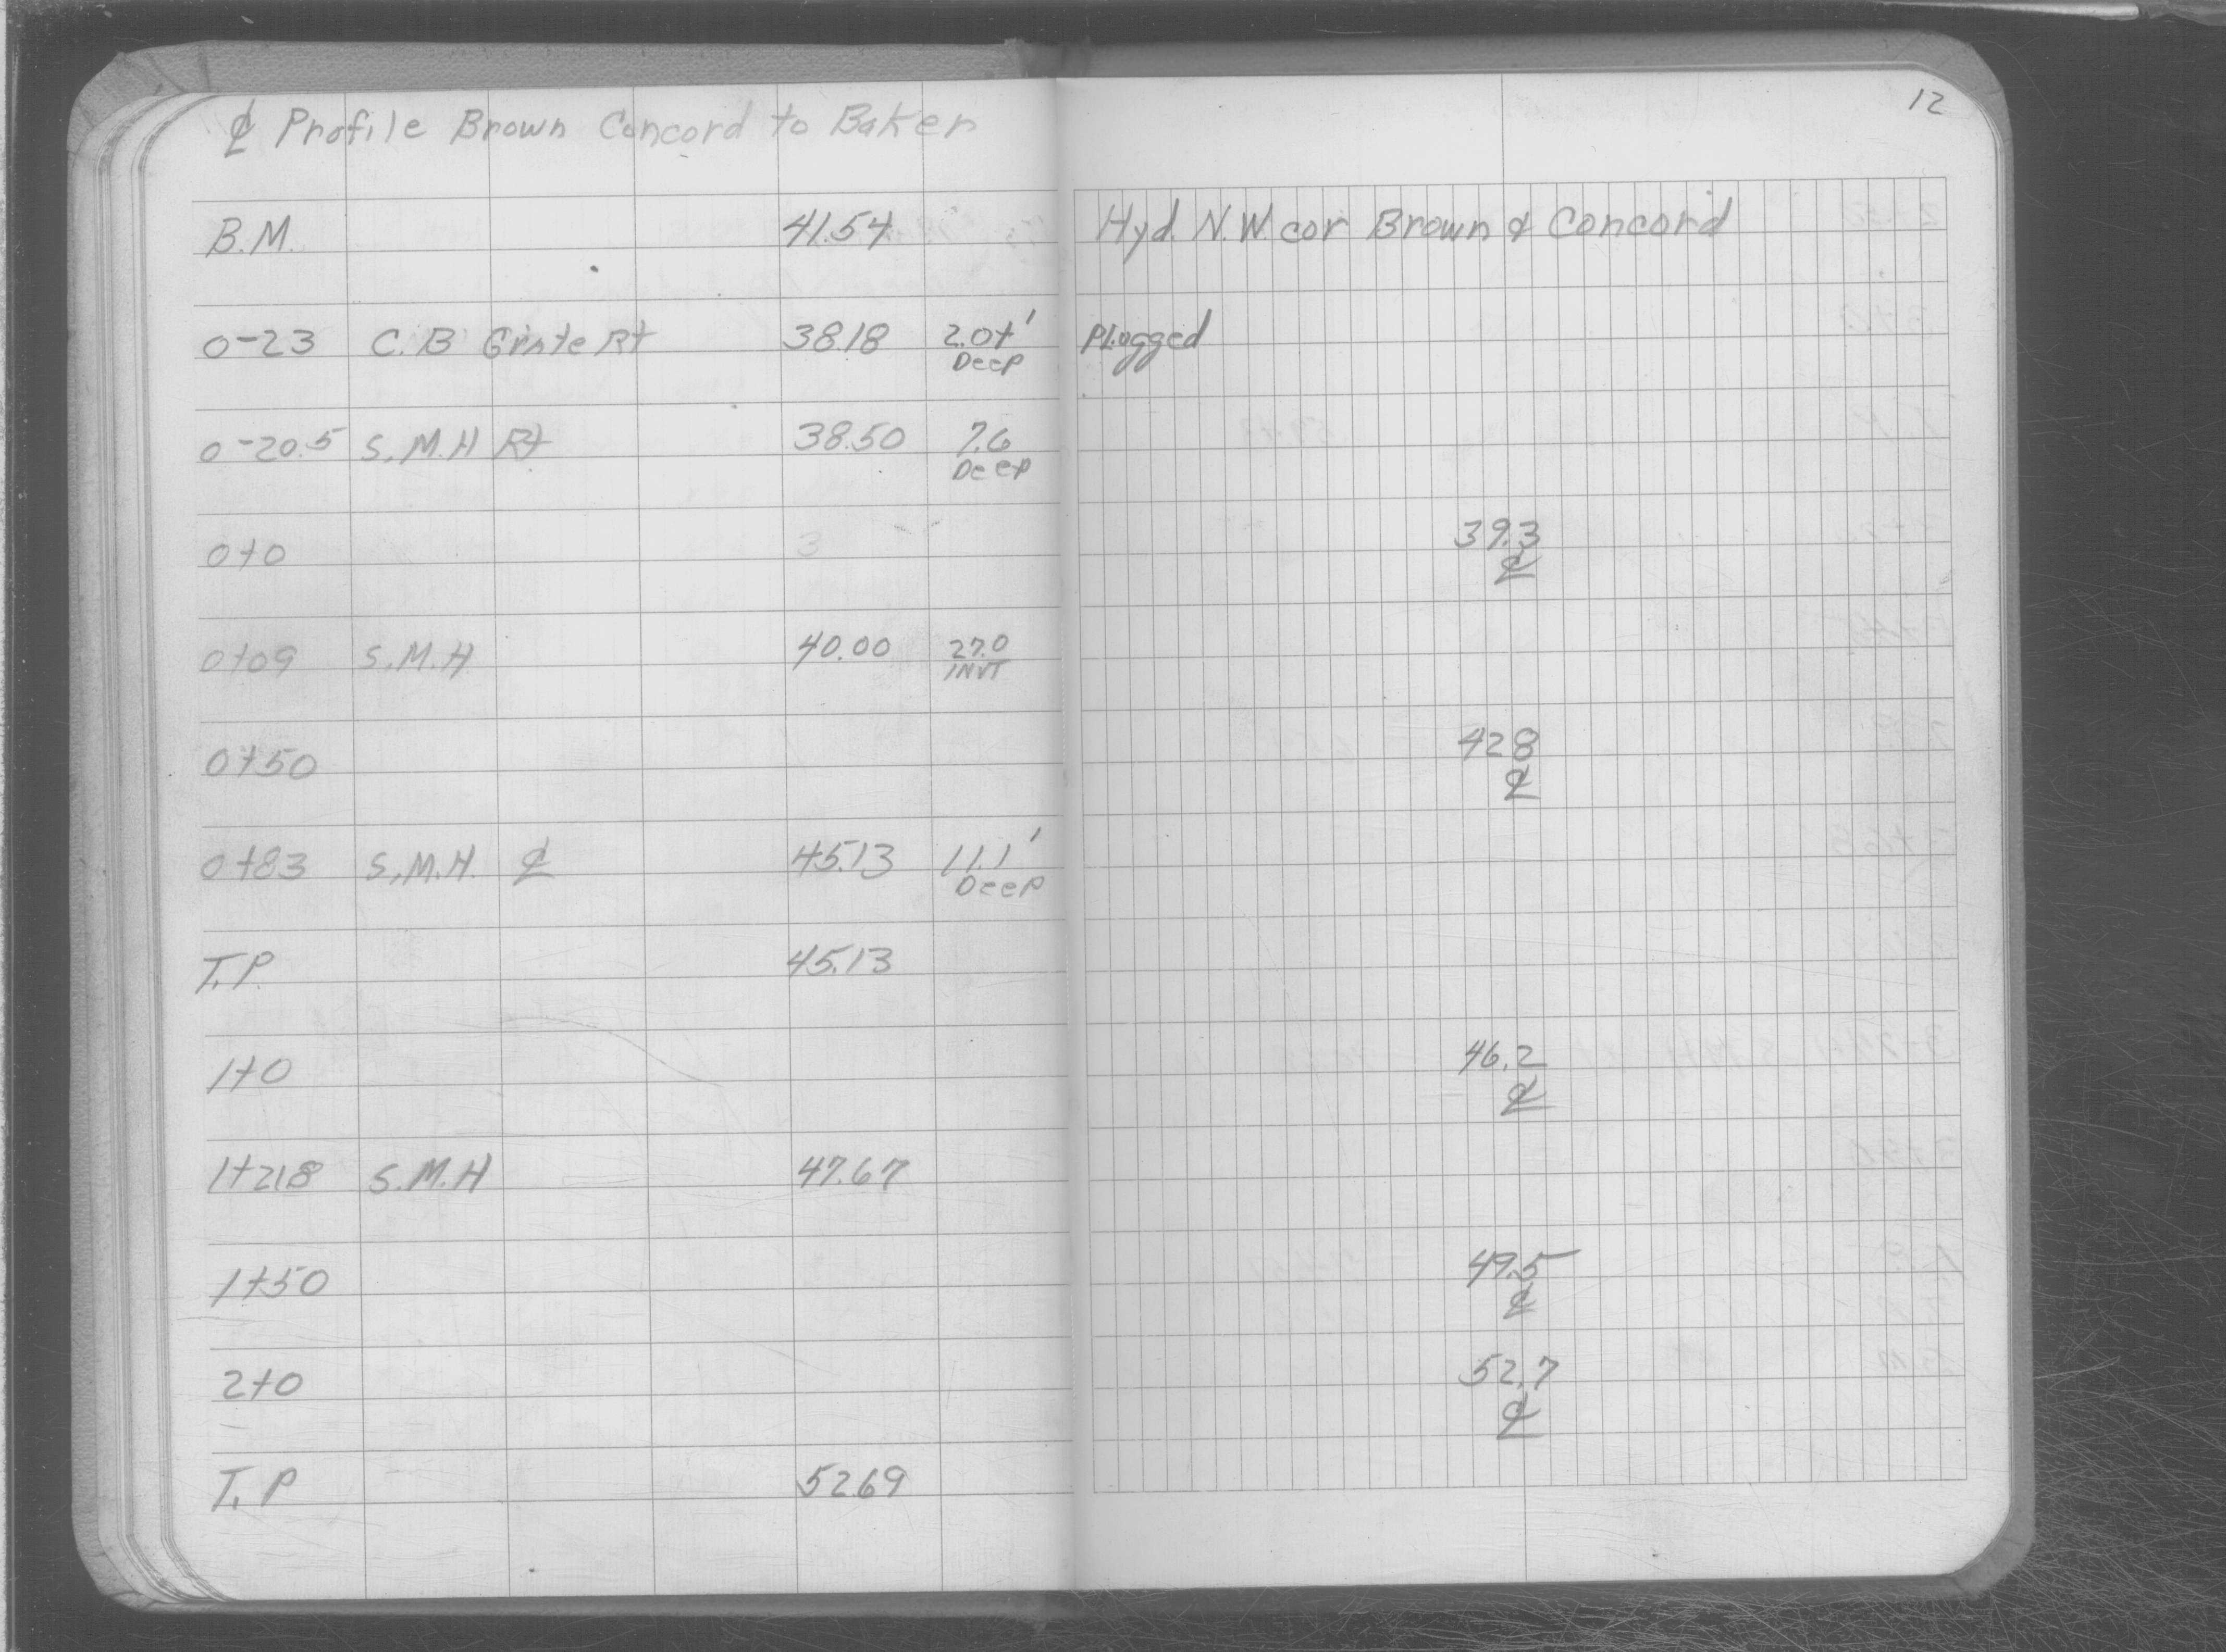 ₵ Profile Brown Concord to Baker
12
B.M. 41.54 Hyd. N.W. cor Brown & Concord
0-23 C.B Grate Rt 38.18 2.0+' Plugged
Deep
0-20.5 S.M.H Rt 38.50 7.6
Deep
0+0 3 39.3
₵
0+09 S.M.H 40.00 27.0
INVT
0+50 42.8
₵
0+83 S.M.H. ₵ 45.13 11.1'
Deep
T.P. 45.13
1+0 46.2
₵
1+21.8 S.M.H 47.67
1+50 49.5
₵
2+0 52.7
₵
T.P 52.69